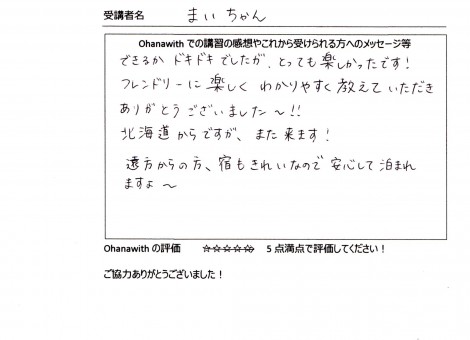 受講者名　まいちゃん
Ohanawith での講習の感想やこれから受けられる方へのメッセージ等
できるか ドキドキでしたが、とっても楽しかったです！
フレンドリーに楽しく わかりやすく 教えていただき
ありがとうございました～!!
北海道からですが、また来ます！
遠方からの方、宿もきれいなので 安心して泊まれ
ますよ～
Ohanawith の評価　☆☆☆☆☆　5 点満点で評価してください！
ご協力ありがとうございました！